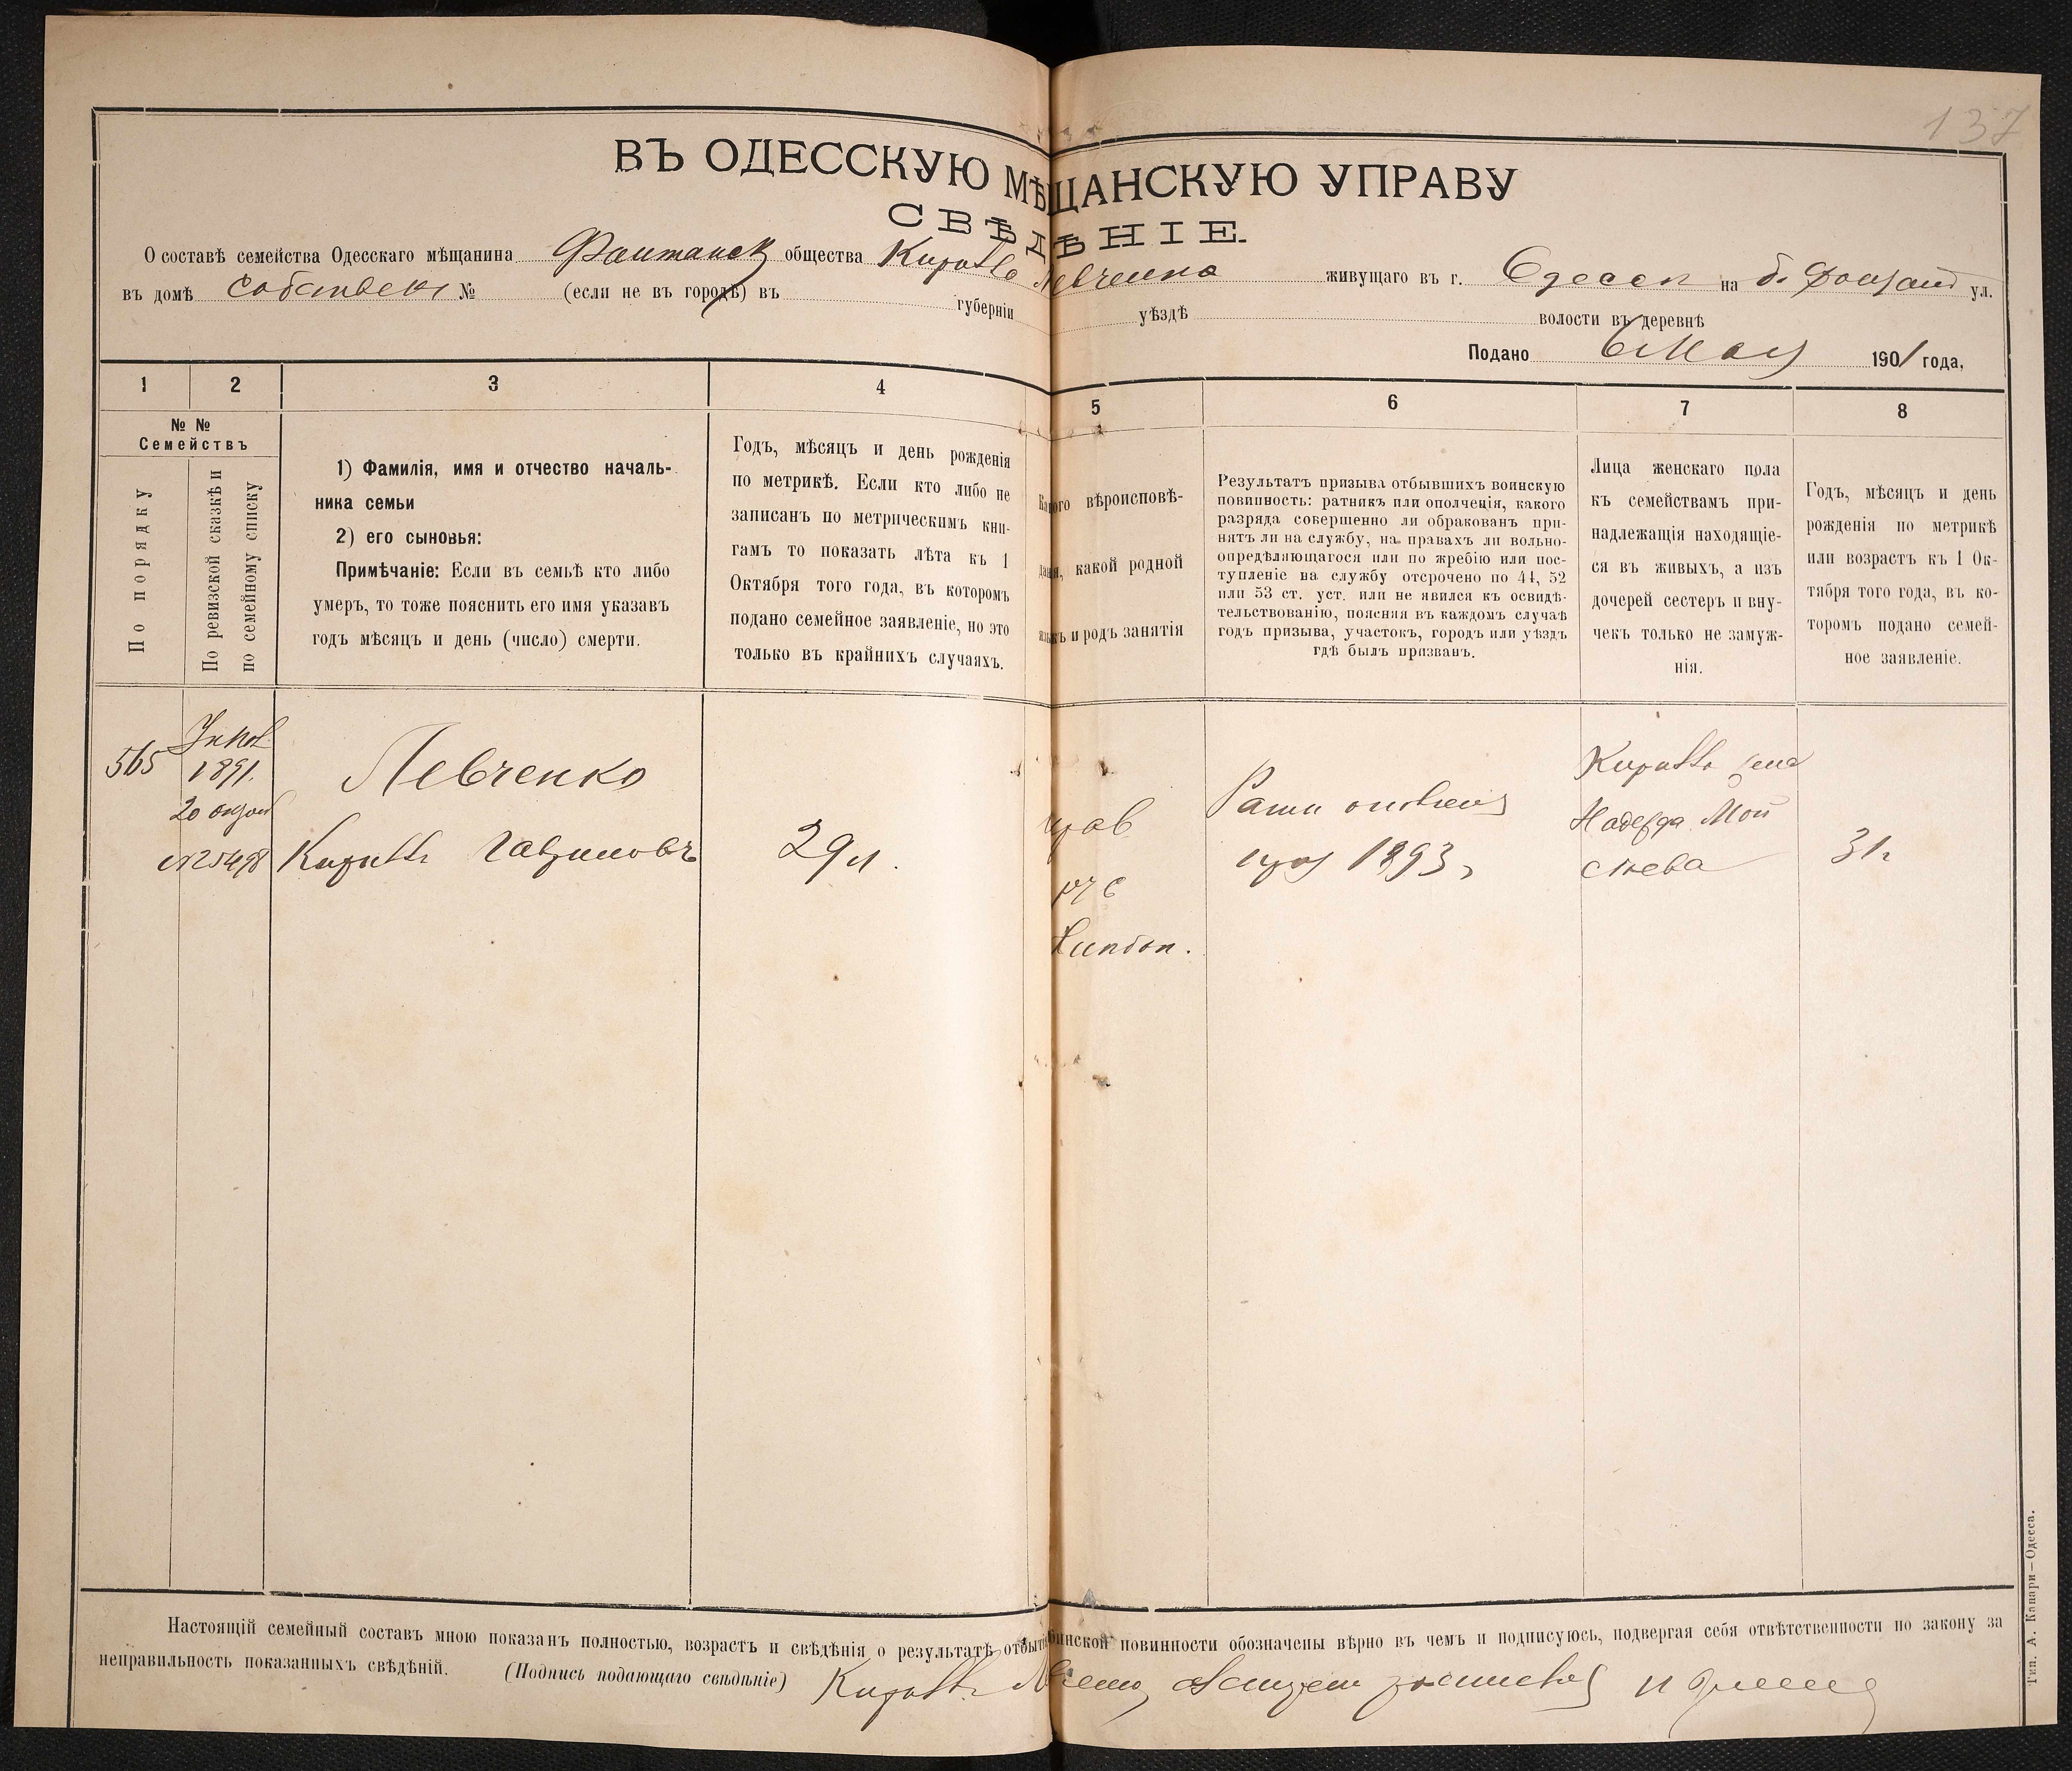 137
ВЪ ОДЕССКУЮ МѢЩАНСКУЮ УПРАВУ
СВѢДѢНІЕ.
О составѣ семейства Одесскаго мѣщанина Фонтанск общества Кирилла Левченко живущаго въ г. Одессѣ на б. Фонтан ул.
въ домѣ собствен № (если не въ городѣ) въ губерніи уѣздѣ волости въ деревнѣ
Подано 6 Мая 1901 года,
1 2 3 4 5 6 7 8
№ №
Семействъ
По порядку
По ревизской сказкѣ и
по семейному списку
1) Фамилія, имя и отчество началь-
ника семьи
2) его сыновья:
Примѣчаніе: Если въ семьѣ кто либо
умеръ, то тоже пояснить его имя указавъ
годъ мѣсяцъ и день (число) смерти.
Годъ, мѣсяцъ и день рожденія
по метрикѣ. Если кто либо не
записанъ по метрическимъ кни-
гамъ то показать лѣта къ 1
Октября того года, въ которомъ
подано семейное заявленіе, но это
только въ крайнихъ случаяхъ.
Какого вѣроисповѣ-
данія, какой родной
языкъ и родъ занятія
Результатъ призыва отбывшихъ воинскую
повинность: ратникъ или ополченія, какого
разряда совершенно ли обракованъ при-
нятъ ли на службу, на правахъ ли вольно-
опредѣляющагося или по жребію или пос-
тупленіе на службу отсрочено по 44, 52
или 53 ст. уст. или не явился къ освидѣ-
тельствованію, поясняя въ каждомъ случаѣ
годъ призыва, участокъ, городъ или уѣздъ
гдѣ былъ призванъ.
Лица женскаго пола
къ семействамъ при-
надлежащія находящіе-
ся въ живыхъ, а изъ
дочерей сестеръ и вну-
чекъ только не замуж-
нія.
Годъ, мѣсяцъ и день
рожденія по метрикѣ
или возрастъ къ 1 Ок-
тября того года, въ ко-
торомъ подано семей-
ное заявленіе.
565
1891.
20
№ 25498
Левченко
Кириллъ Гавриловъ
29 л.
прав
рус
Хлѣбоп.
Ратн ополчен
1893 г
Кирилла жена
Надежда Мой
сѣева
31 г
Настоящій семейный составъ мною показанъ полностью, возрастъ и свѣдѣнія о результатѣ отбытія воинской повинности обозначены вѣрно въ чемъ и подписуюсь, подвергая себя отвѣтственности по закону за
неправильность показанныхъ свѣдѣній. (Подпись подающаго свѣдѣніе) Кириллъ Левченко
Тип. А. Кащари—Одесса.